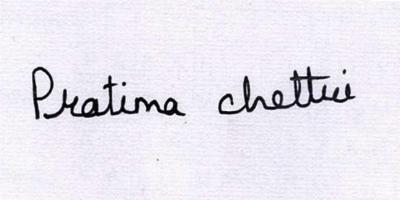 Pratima chettri